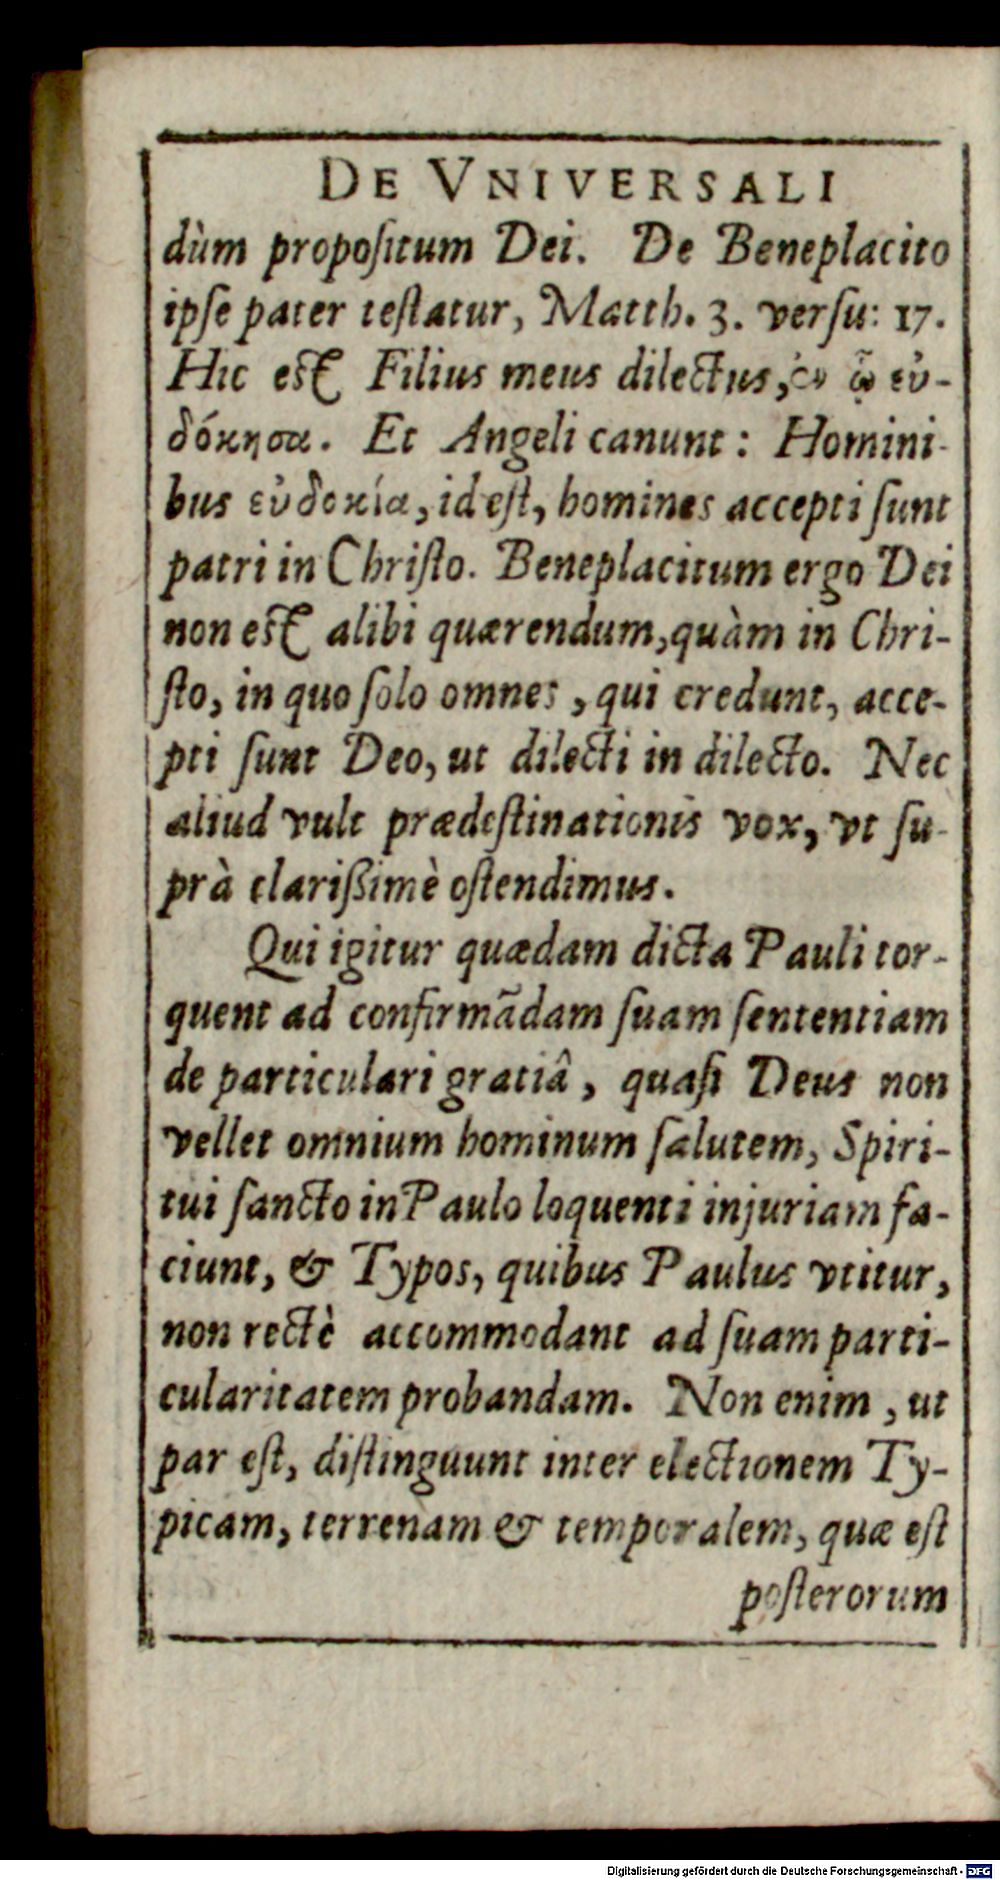 DE VNIVERSALI
dùm propoſitum Dei. De Beneplacito
ipſe pater teſtatur, Matth. 3. verſu: 17.
Hic eſt Filius meus dilectus, ἐν ᾧ εὐ-
δόκησα. Et Angeli canunt: Homini-
bus εὐδοκία, id eſt, homines accepti ſunt
patri in Chriſto. Beneplacitum ergo Dei
non eſt alibi quærendum, quàm in Chri-
ſto, in quo ſolo omnes, qui credunt, acce-
pti ſunt Deo, ut dilecti in dilecto. Nec
aliud vult prædeſtinationis vox, vt ſu-
prà clarißimè oſtendimus.
Qui igitur quædam dicta Pauli tor-
quent ad confirmãdam ſuam ſententiam
de particulari gratiâ, quaſi Deus non
vellet omnium hominum ſalutem, Spiri-
tui ſancto in Paulo loquenti injuriam fa-
ciunt, & Typos, quibus Paulus vtitur,
non rectè accommodant ad ſuam parti-
cularitatem probandam. Non enim, ut
par eſt, diſtinguunt inter electionem Ty-
picam, terrenam & temporalem, quæ eſt
poſterorum
Digitalisierung gefördert durch die Deutsche Forschungsgemeinschaft - DFG